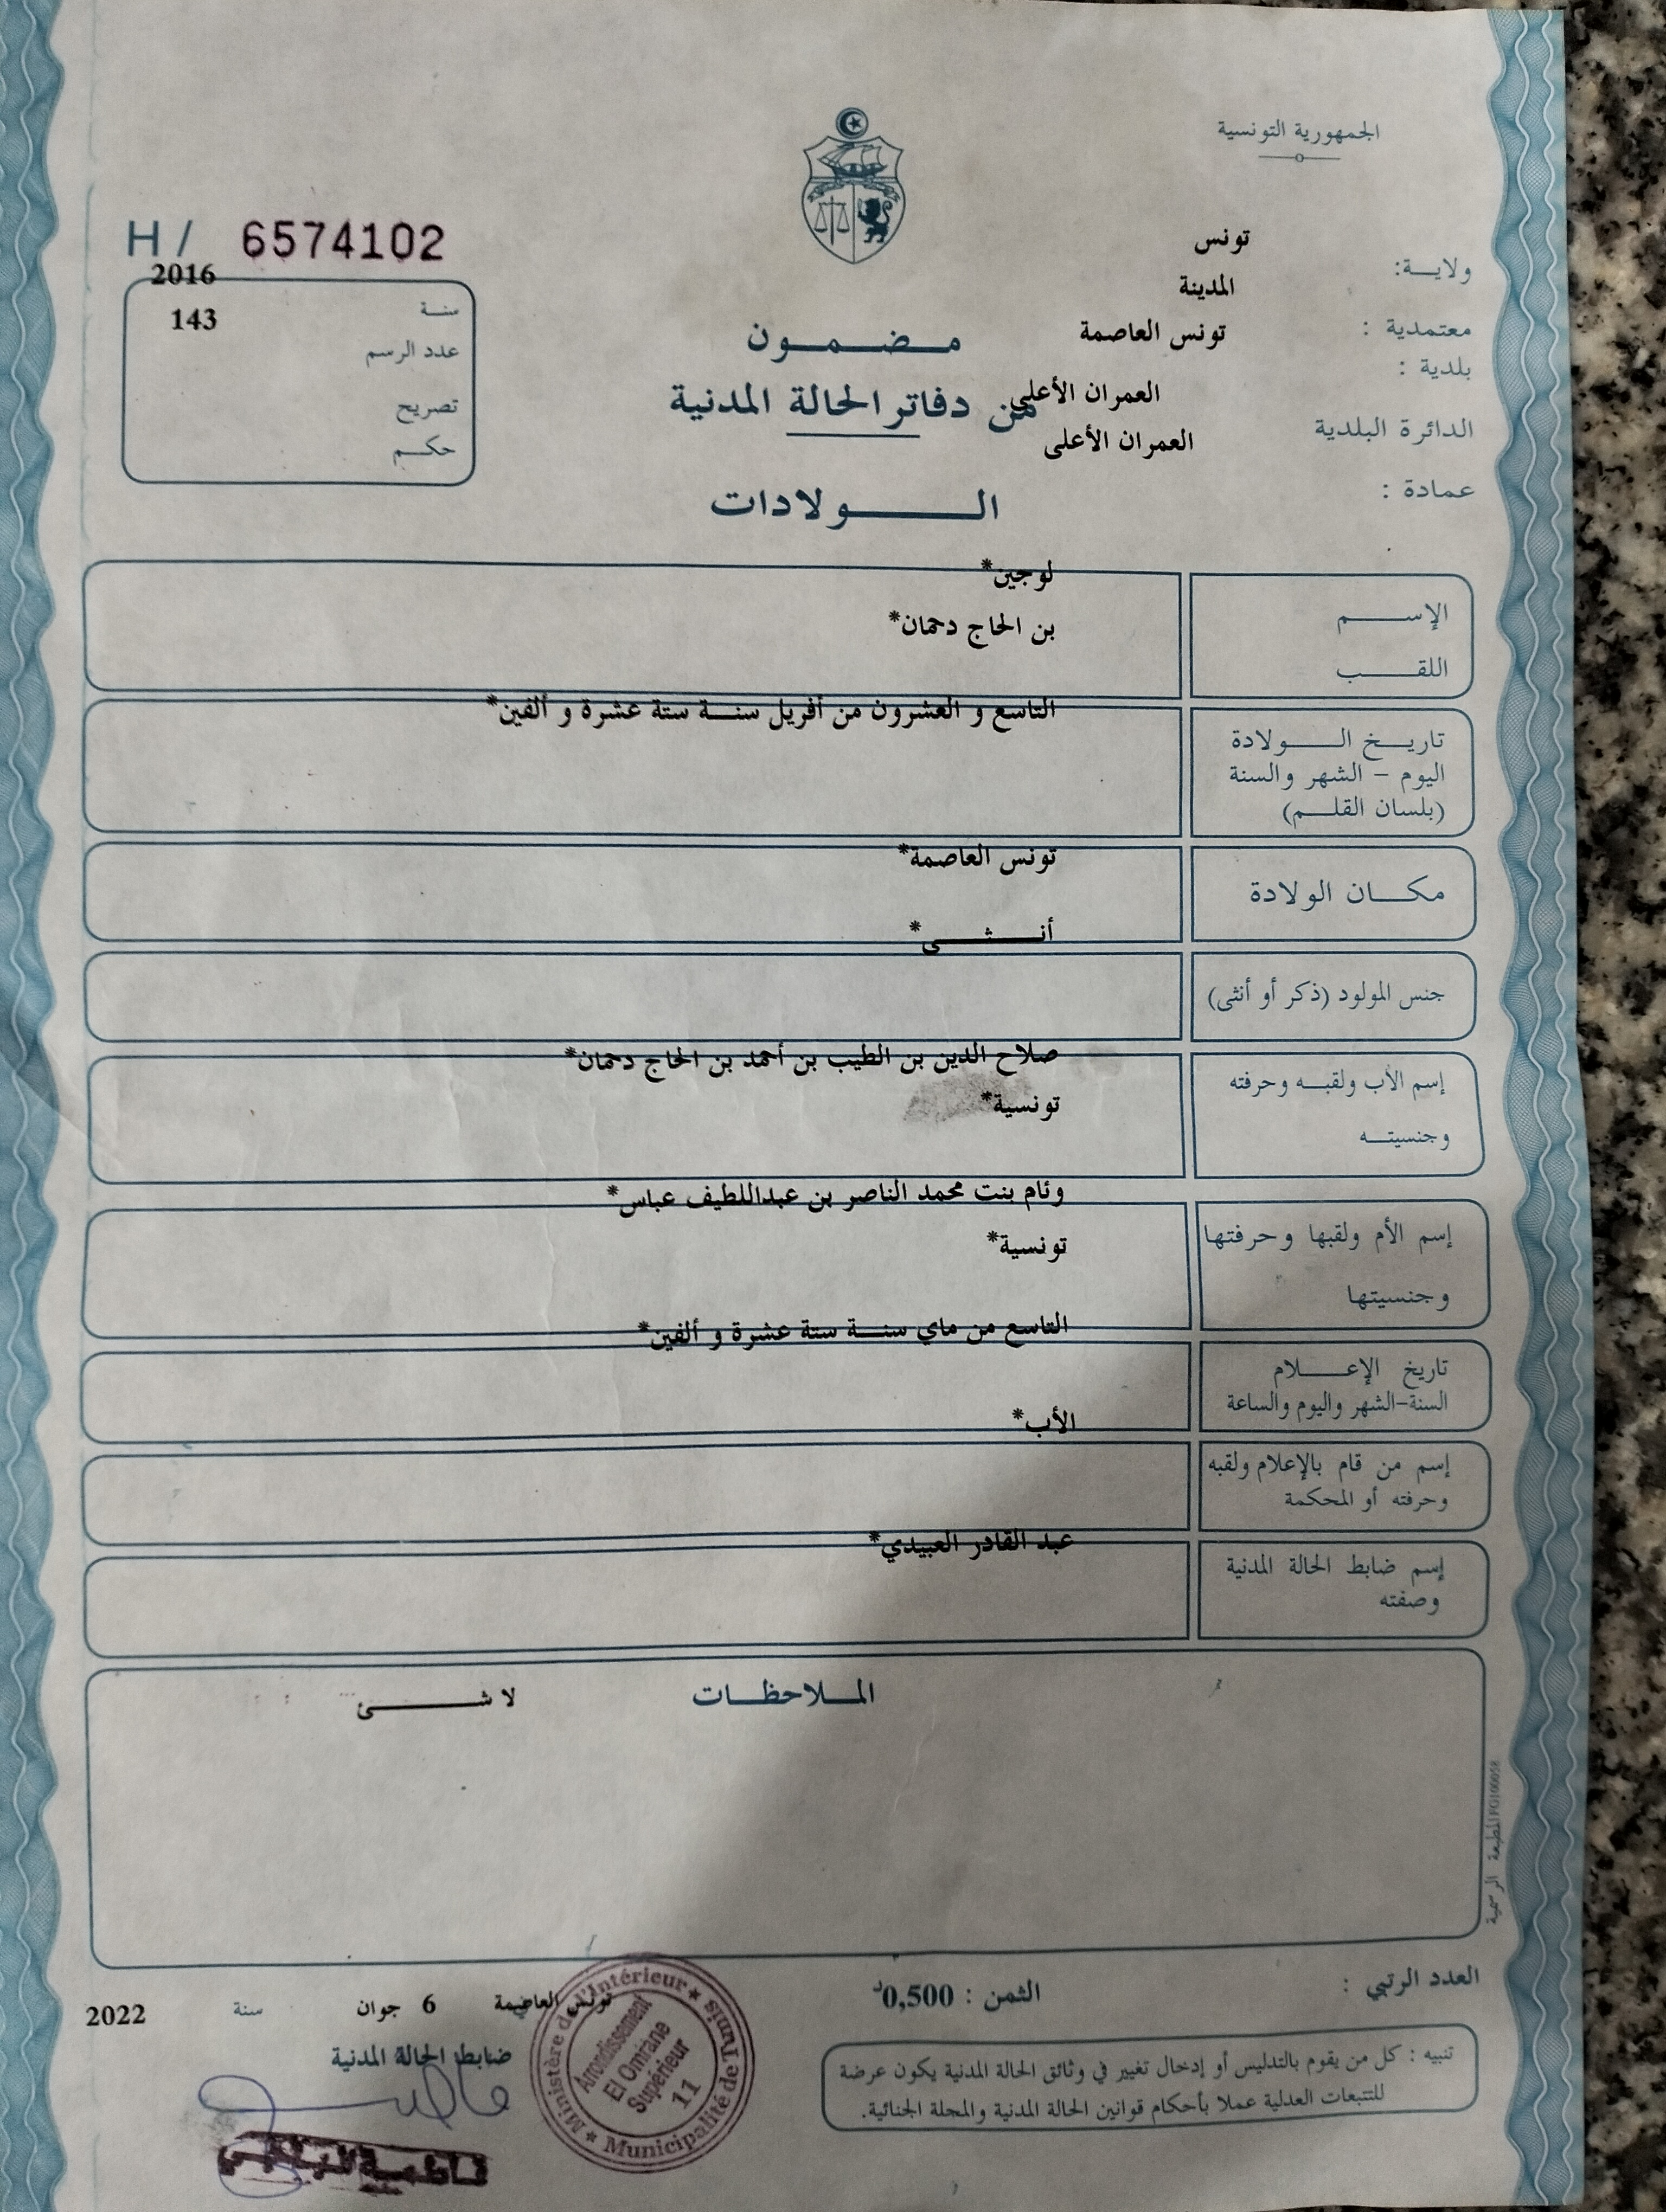 الجمهورية التونسية
H / 6574102
ولايـــة: تونس
معتمدية : المدينة
بلدية : تونس العاصمة
الدائرة البلدية العمران الأعلى
عمادة : العمران الأعلى
سنـة 2016
عدد الرسم 143
تصريح
حكـــم
مـــضـــمـــون
من دفاتر الحالة المدنية
الــــــولادات
الإســــــم لوجين*
اللقـــب بن الحاج دحمان*
تاريـــخ الـــــولادة التاسع و العشرون من أفريل سنـــة ستة عشرة و ألفين*
اليوم - الشهر والسنة
(بلسان القلـــم)
مكـــان الولادة تونس العاصمة*
جنس المولود (ذكر أو أنثى) أنــــثــــى*
إسم الأب ولقبـــه وحرفته صلاح الدين بن الطيب بن أحمد بن الحاج دحمان*
وجنسيتـــه تونسية*
إسم الأم ولقبها وحرفتها وئام بنت محمد الناصر بن عبداللطيف عباس*
وجنسيتها تونسية*
تاريخ الإعـــــلام التاسع من ماي سنـــة ستة عشرة و ألفين*
السنة-الشهر واليوم والساعة
إسم من قام بالإعلام ولقبه الأب*
وحرفته أو المحكمة
إسم ضابط الحالة المدنية عبد القادر العبيدي*
وصفته
المـــلاحظـــات لا شـــــــئ
المطبعة الرسمية FG100058
العدد الرتبي :
الثمن : 0,500د
تونس العاصمة 6 جوان سنة 2022
ضابط الحالة المدنية
تنبيه : كل من يقوم بالتدليس أو إدخال تغيير في وثائق الحالة المدنية يكون عرضة
للتتبعات العدلية عملا بأحكام قوانين الحالة المدنية والمجلة الجنائية.
Ministère de l'Intérieur ★ Municipalité de Tunis ★
Arrondissement
El Omrane
Supérieur
11